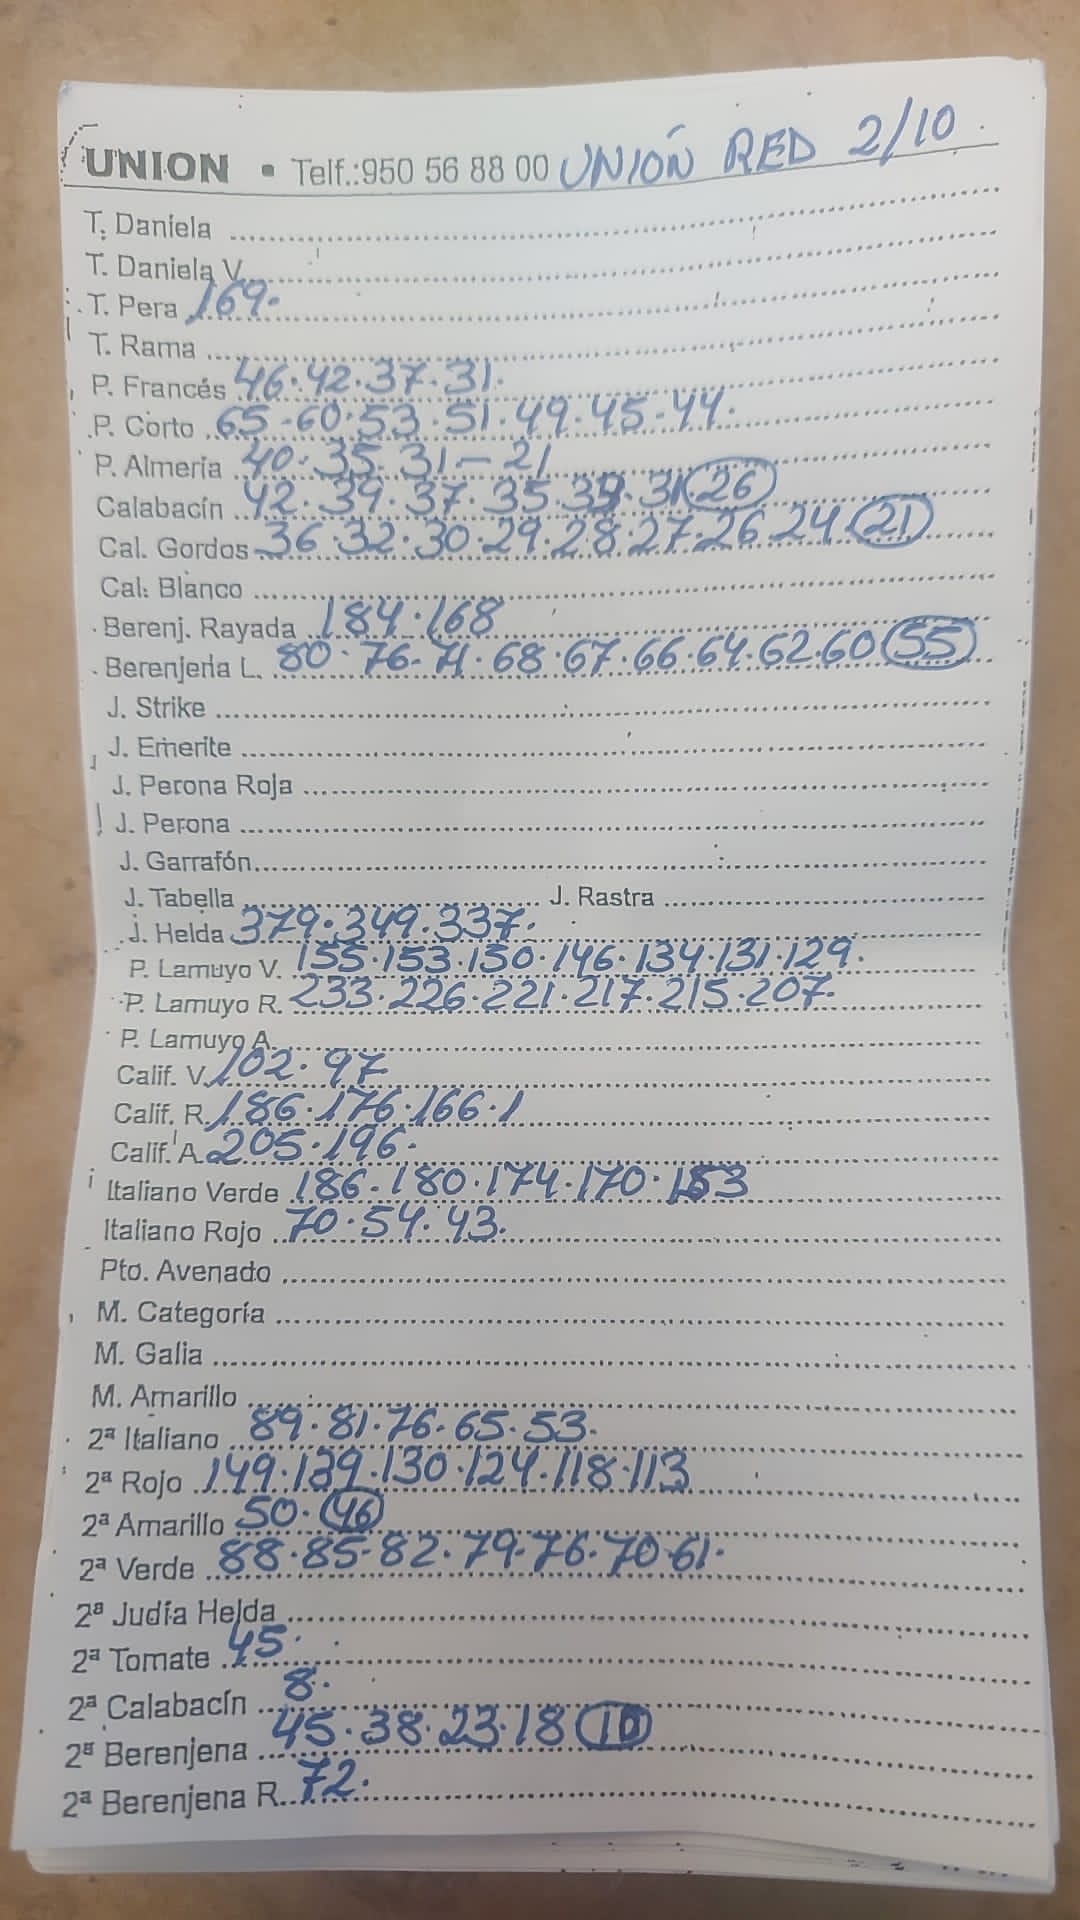 UNION • Telf.:950 56 88 00 UNIÓN RED 2/10
T. Daniela
T. Daniela V.
T. Pera 169.
T. Rama
P. Francés 46.42.37.31.
P. Corto 65-60.53.51.49.45-44.
P. Almería 40.35.31-21
Calabacín 42.39.37.35. 31 26
Cal. Gordos 36.32.30.29.28.27.26.24 21
Cal. Blanco
Berenj. Rayada 184.168
Berenjena L. 80.76.71.68.67.66.64.62.60 55
J. Strike
J. Emerite
J. Perona Roja
J. Perona
J. Garrafón
J. Tabella J. Rastra
J. Helda 379.349.337.
P. Lamuyo V. 155.153.150.146.134.131.129.
P. Lamuyo R. 233.226.221.217.215.207.
P. Lamuyo A.
Calif. V. 102.97
Calif. R. 186.176.166.1
Calif. A. 205.196.
Italiano Verde 186.180.174.170.153
Italiano Rojo 70.54.43.
Pto. Avenado
M. Categoría
M. Galia
M. Amarillo
2ª Italiano 89.81.76.65.53.
2ª Rojo 149.139.130.124.118.113
2ª Amarillo 50.46
2ª Verde 88.85.82.79.76.70.61.
2ª Judía Helda
2ª Tomate 45.
2ª Calabacín 8.
2ª Berenjena 45.38.23.18 10
2ª Berenjena R. 72.